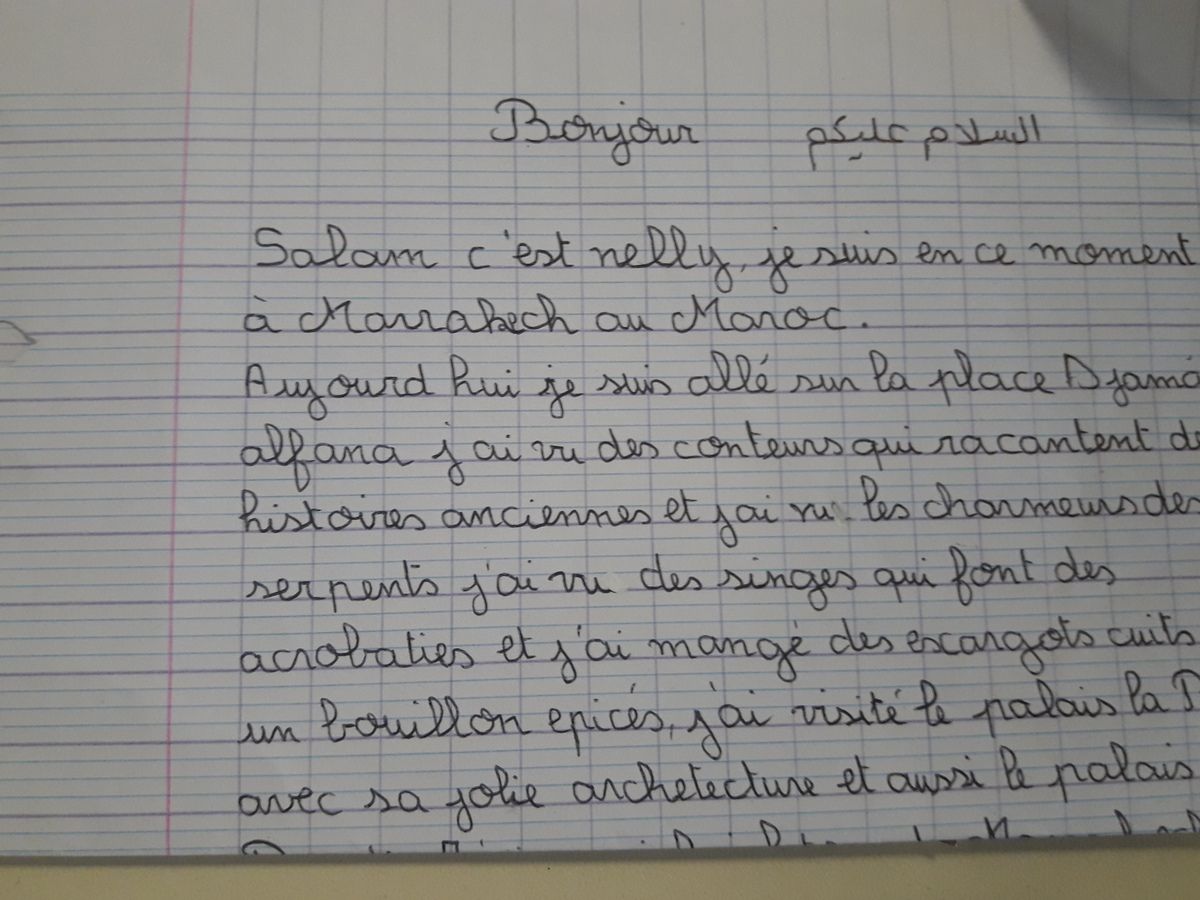 Bonjour السلام عليكم
Salam c'est nelly, je suis en ce moment
à Marrakech au Maroc.
Aujourd hui je suis allé sur la place Djamâ
alfana j'ai vu des conteurs qui racantent
histoires anciennes et j'ai vu les charmeurs des
serpents j'ai vu des singes qui font des
acrobaties et j'ai mangé des escargots cuits
un bouillon epicés, j'ai visité le palais la
avec sa jolie archetecture et aussi le palais